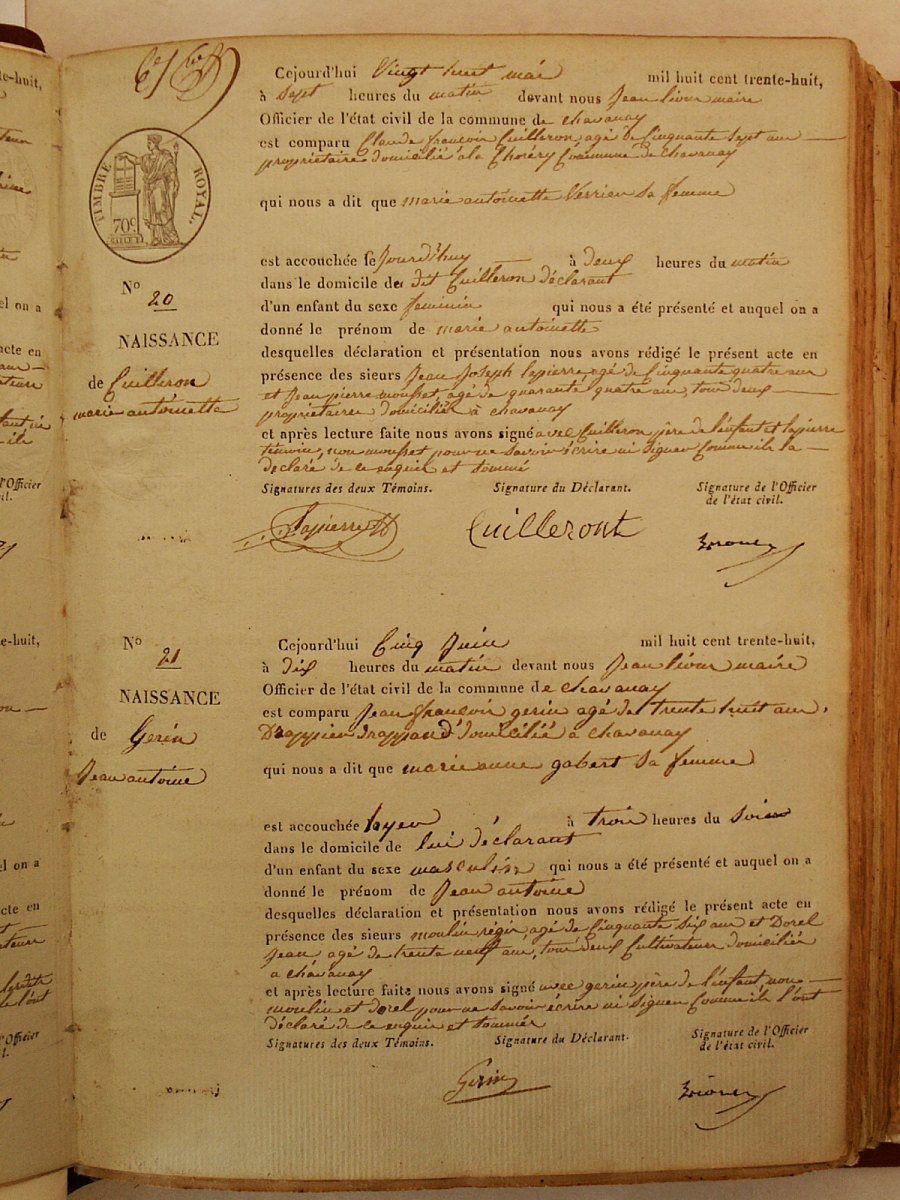 TIMBRE ROYAL
70c
Cejourd'hui Vingt huit mai mil huit cent trente-huit,
à sept heures du matin devant nous Jean maire
Officier de l'état civil de la commune de chavanay
est comparu Claude françois Cuilleron agé de Cinquante sept ans
propriétaire domicilié à la Commune de Chavanay
qui nous a dit que marie antoinette Verrien sa femme
est accouchée à deux heures du matin
dans le domicile de dit Cuilleron déclarant
d'un enfant du sexe feminin qui nous a été présenté et auquel on a
donné le prénom de marie antoinette
desquelles déclaration et présentation nous avons rédigé le présent acte en
présence des sieurs Jean Joseph Lapierre agé de Cinquante quatre ans
et Jean pierre mousset, agé de quarante quatre ans, tous deux
propriétaires domiciliés à chavanay
et après lecture faite nous avons signé avec Cuilleron père de l'enfant et lapierre
témoin, non mousset pour ne savoir écrire ni signer Comme il la
declaré de ce enquis et sommé
Signatures des deux Témoins. Signature du Déclarant. Signature de l'Officier
de l'état civil.
Lapierre Cuilleront
No 20
NAISSANCE
de Cuilleron
marie antoinette
Cejourd'hui Cinq Juin mil huit cent trente-huit,
à dix heures du matin devant nous Jean maire
Officier de l'état civil de la commune de chavanay
est comparu Jean françois gerin agé de trente huit ans
domicilié à chavanay
qui nous a dit que marie anne gabert sa femme
est accouchée hyer à trois heures du soir
dans le domicile de lui déclarant
d'un enfant du sexe masculin qui nous a été présenté et auquel on a
donné le prénom de Jean antoine
desquelles déclaration et présentation nous avons rédigé le présent acte en
présence des sieurs moulin régis agé de Cinquante six ans et Dorel
Jean agé de trente neuf ans, tous deux Cultivateurs domiciliés
a chavanay
et après lecture faite nous avons signé avec gerin père de l'enfant, non
moulin et dorel pour ne savoir écrire ni signer Comme ils l'ont
déclaré de ce enquis et sommés
Signatures des deux Témoins. Signature du Déclarant. Signature de l'Officier
de l'état civil.
Gerin
No 21
NAISSANCE
de Gerin
Jean antoine